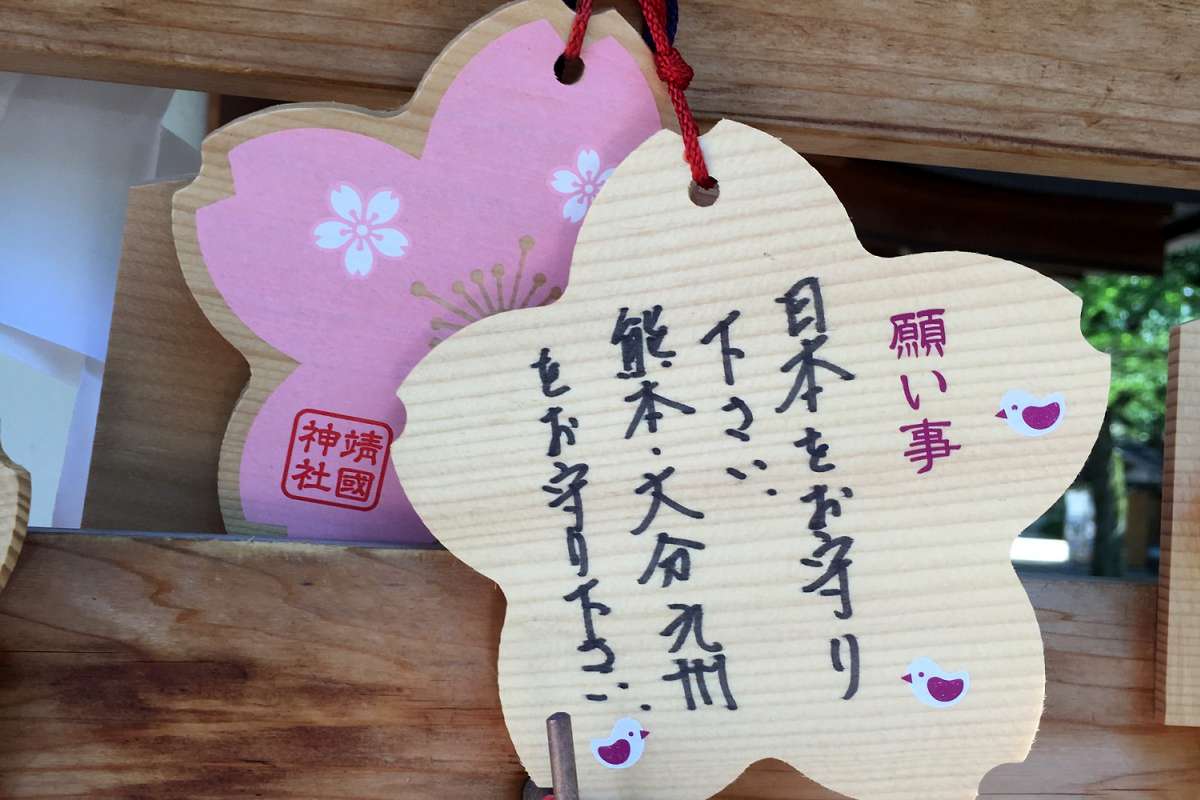 願い事
日本をお守り
下さい.
熊本・大分九州
をお守り下さい.
靖國
神社